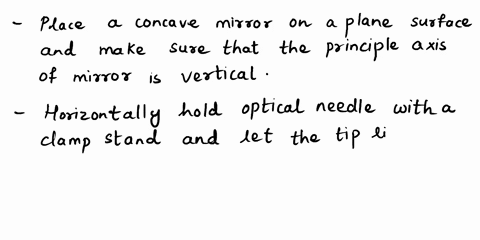 - Place a concave mirror on a plane surface
and make sure that the principle axis
of mirror is vertical.
- Horizontally hold optical needle with a
clamp stand and let the tip li